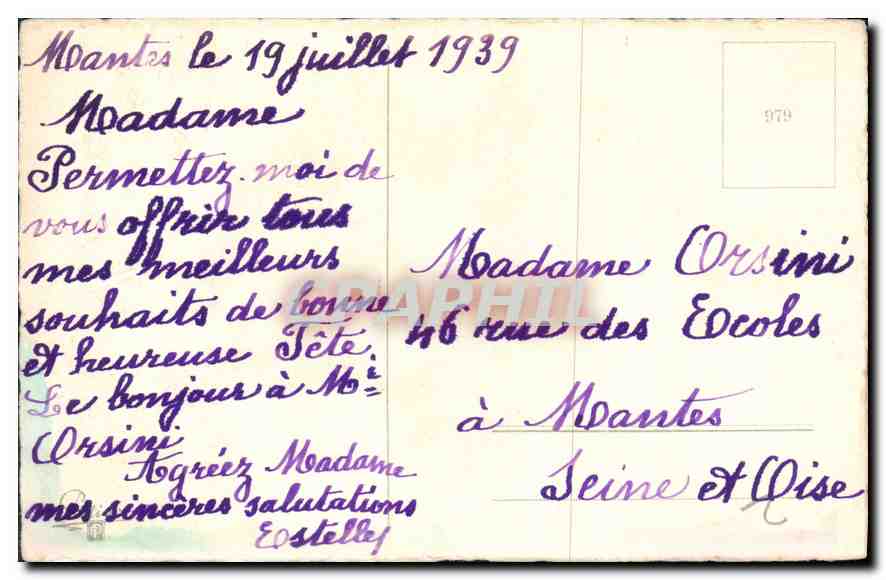 Mantes le 19 juillet 1939
Madame
Permettez-moi de
vous offrir tous
mes meilleurs
souhaits de bonne
et heureuse Fête.
Le bonjour à Mr
Orsini
Agréez Madame
mes sincères salutations
Estelle
979
Madame Orsini
46 rue des Ecoles
à Mantes
Seine et Oise